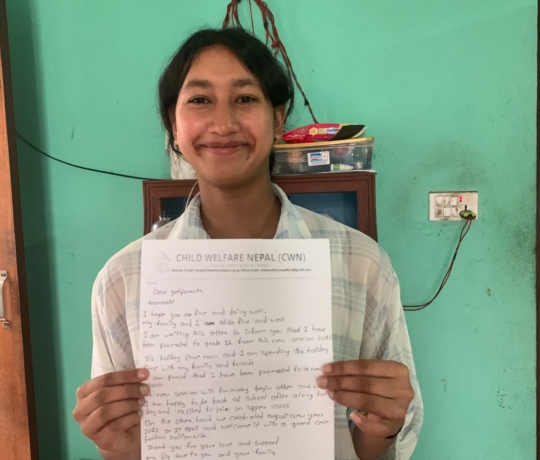 CHILD WELFARE NEPAL (CWN)
Dear godparents
Namaste
I hope you are fine and doing well.
my family and I am also fine and well
I am writing this letter to inform you that I have
been promoted to grade 11 from this new session 2083
It's holiday time now and I am spending the holiday
time with my family and friends
I am proud that I have been promoted to a
new session will formally begin after one
I am happy to be back at school after a long
day and excited to join an upper class
On the other hand we celebrated Nepali new year
2083 on 14 April and welcomed it with a grand
nationwide.
Thank you for your love and support
my love to you and your family